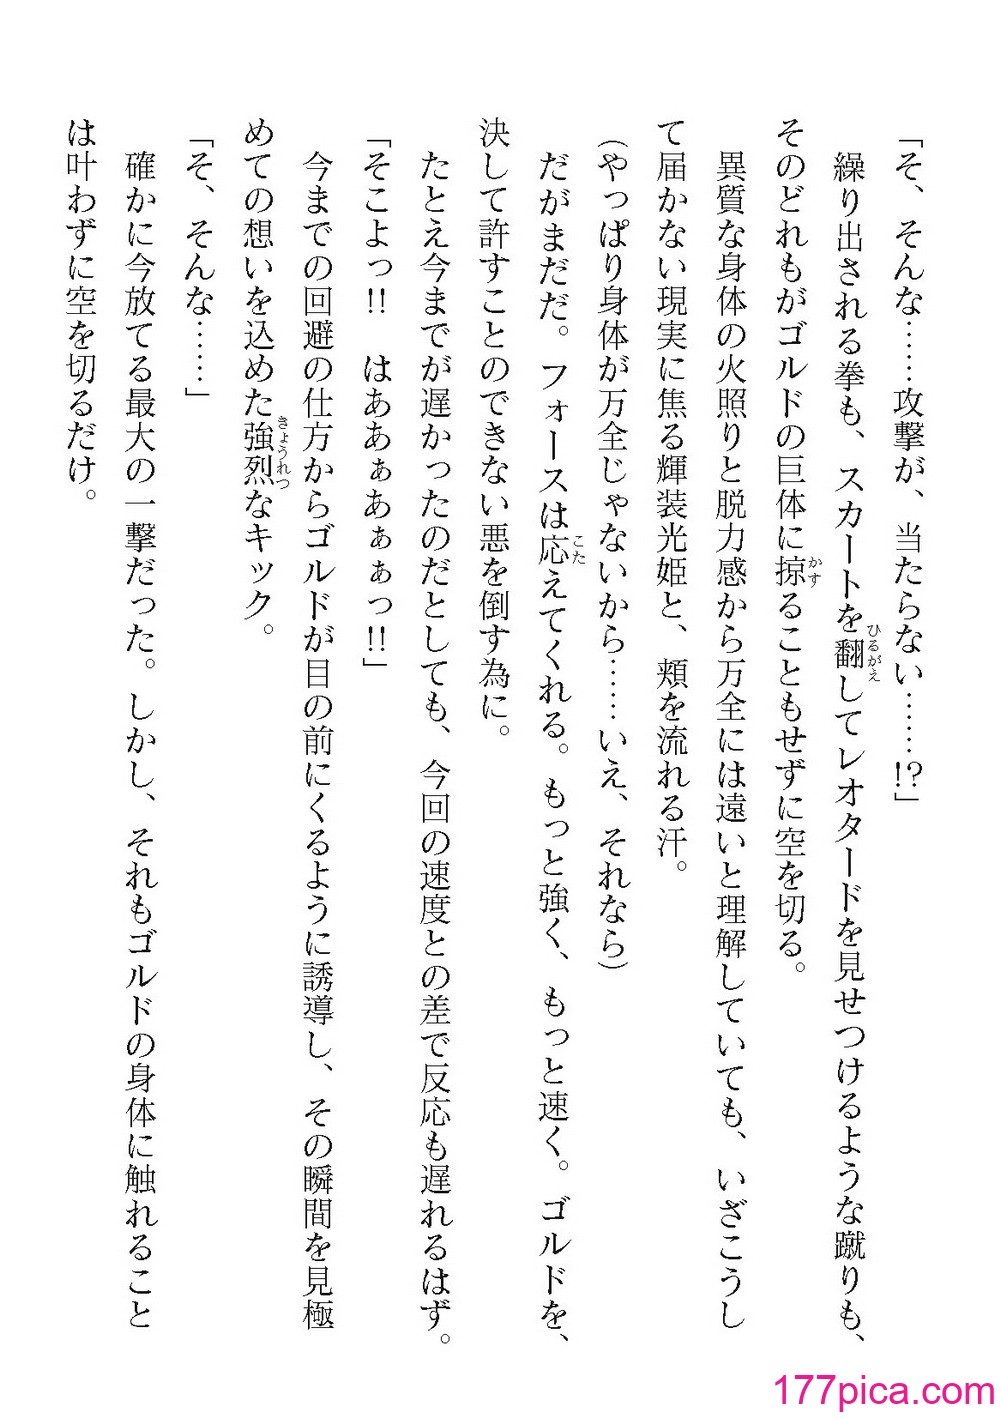 「そ、そんな……攻撃が、当たらない……!?」
繰り出される拳も、スカートを翻してレオタードを見せつけるような蹴りも、
そのどれもがゴルドの巨体に掠ることもせずに空を切る。
異質な身体の火照りと脱力感から万全には遠いと理解していても、いざこうし
て届かない現実に焦る輝装光姫と、頬を流れる汗。
(やっぱり身体が万全じゃないから……いえ、それなら)
だがまだだ。フォースは応えてくれる。もっと強く、もっと速く。ゴルドを、
決して許すことのできない悪を倒す為に。
たとえ今までが遅かったのだとしても、今回の速度との差で反応も遅れるはず。
「そこよっ!!　はああぁあぁぁっ!!」
今までの回避の仕方からゴルドが目の前にくるように誘導し、その瞬間を見極
めての想いを込めた強烈なキック。
「そ、そんな……」
確かに今放てる最大の一撃だった。しかし、それもゴルドの身体に触れること
は叶わずに空を切るだけ。
ひるがえ
かす
こた
きょうれつ
177pica.com